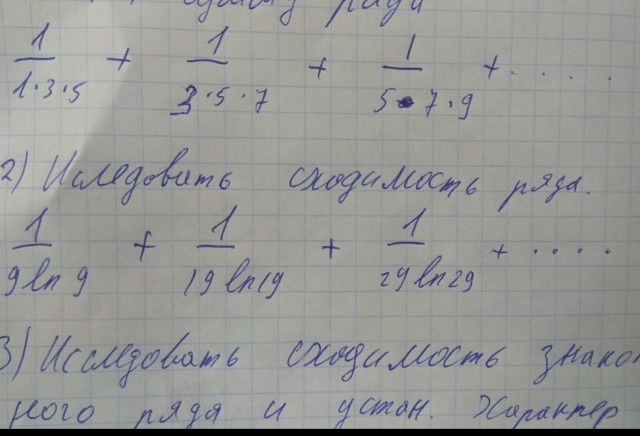 сумму ряда
1/1·3·5 + 1/3·5·7 + 1/5·7·9 + ....
2) Иследовать сходимость ряда.
1/9 ln 9 + 1/19 ln 19 + 1/29 ln 29 + ....
3) Исследовать сходимость знако
ного ряда и устан. Характер